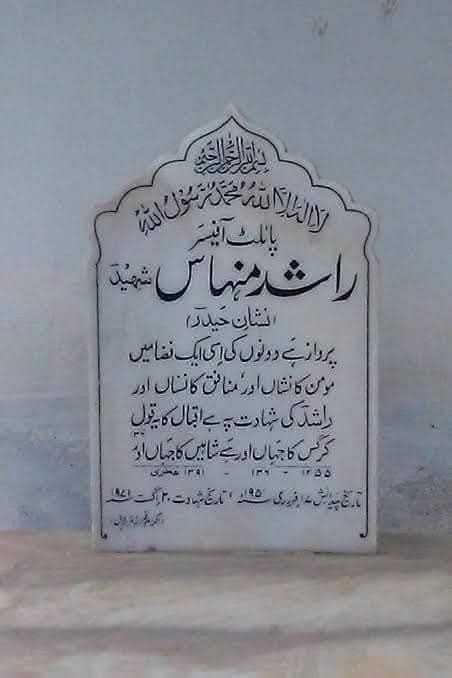 بسم اللہ الرحمن الرحیم
لا الہ الا اللہ محمد رسول اللہ
پائلٹ آفیسر
راشد منہاس شہید
(نشانِ حیدر)
پرواز ہے دونوں کی اِسی ایک فضا میں
مومن کا نشاں اور، منافق کا نشاں اور
راشد کی شہادت پہ ہے اقبال کا یہ قول
کرگس کا جہاں اور ہے شاہیں کا جہاں اور
۱۲۵۵ - ۱۳۶ - ۱۳۹۱ ہجری
تاریخ پیدائش ۱۷ فروری ۱۹۵۱ء، تاریخ شہادت ۲۰ اگست ۱۹۷۱ء